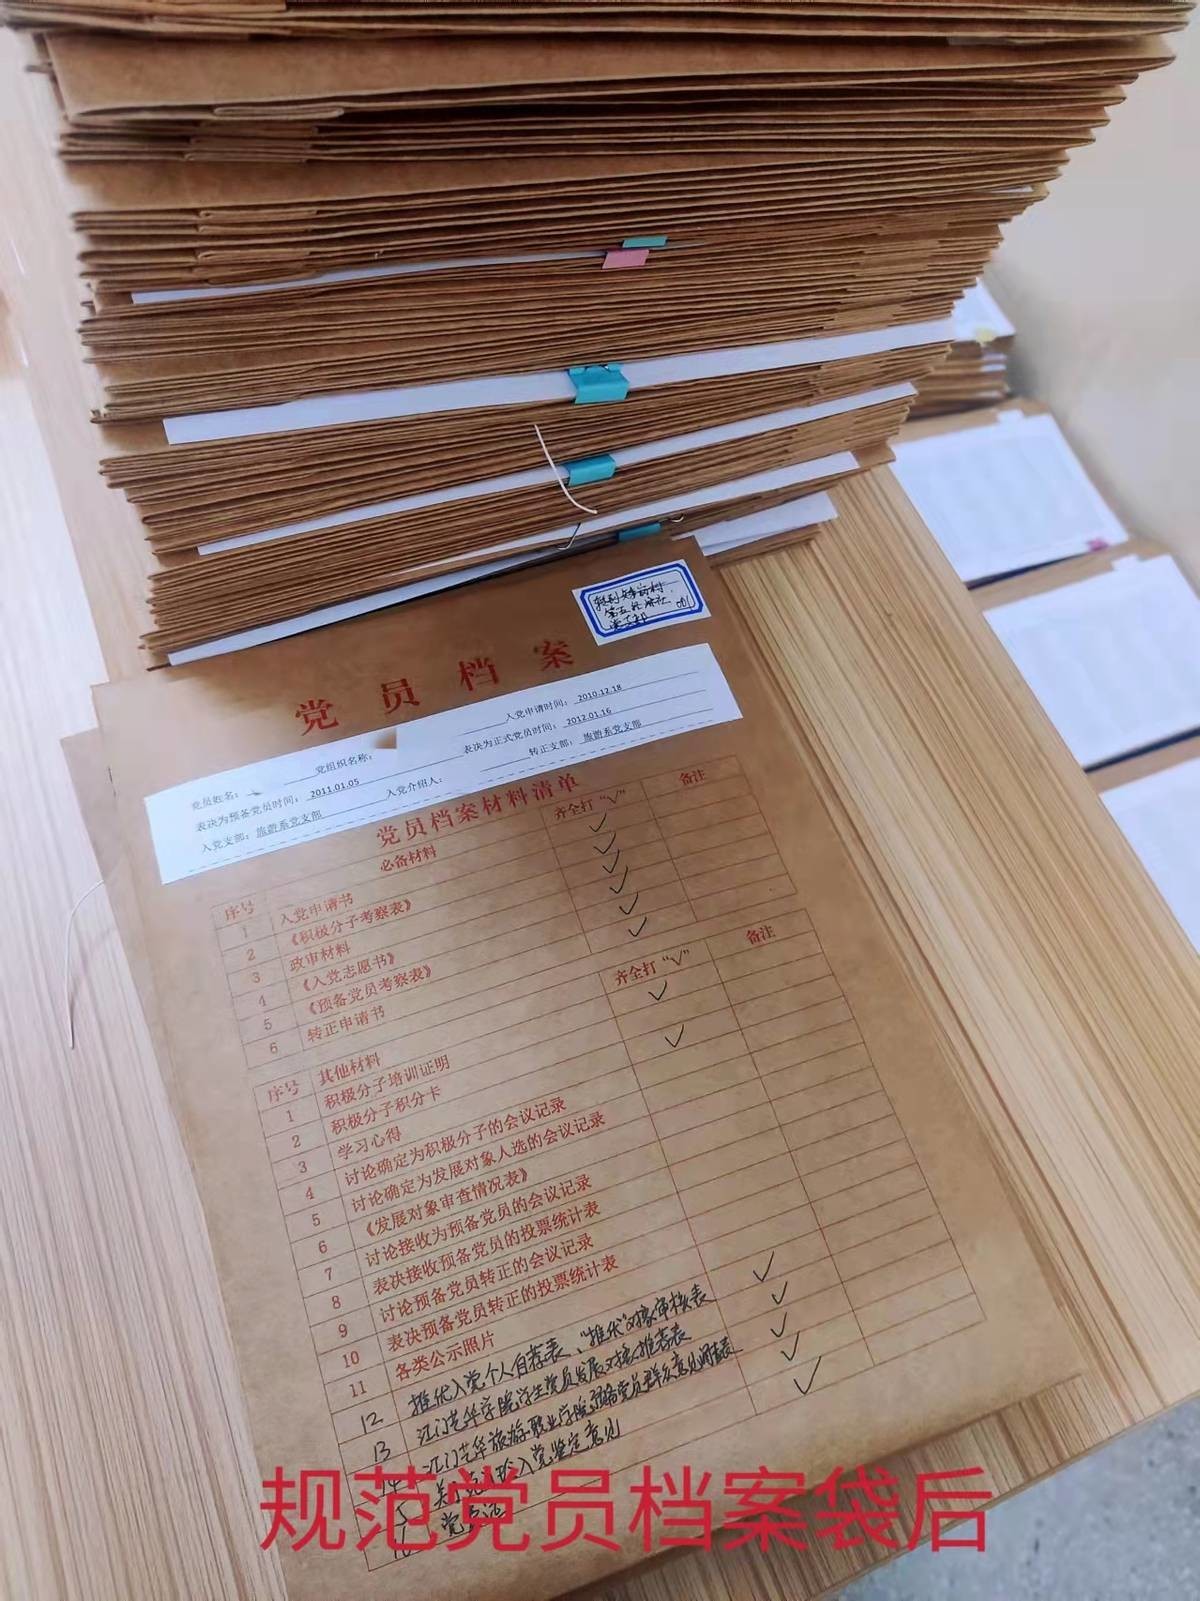 第五
001
党员档案
党员姓名： 党组织名称： 入党申请时间：2010.12.18
表决为预备党员时间：2011.01.05 表决为正式党员时间：2012.01.16
入党支部：旅游系党支部 入党介绍人： 转正支部：旅游系党支部
党员档案材料清单
序号 必备材料 齐全打“√” 备注
1 入党申请书 √
2 《积极分子考察表》 √
3 政审材料 √
4 《入党志愿书》 √
5 《预备党员考察表》 √
6 转正申请书 √
序号 其他材料 齐全打“√” 备注
1 积极分子培训证明 √
2 积极分子积分卡
3 学习心得 √
4 讨论确定为积极分子的会议记录
5 讨论确定为发展对象人选的会议记录
6 《发展对象审查情况表》
7 讨论接收为预备党员的会议记录
8 表决接收预备党员的投票统计表
9 讨论预备党员转正的会议记录
10 表决预备党员转正的投票统计表
11 各类公示照片
12 推优入党个人自荐表、“推优”对象审核表 √
13 江门艺华学院学生党员发展对象推荐表 √
14 江门艺华旅游职业学院预备党员群众意见调查表 √
入党鉴定意见 √
16 党员证 √
规范党员档案袋后